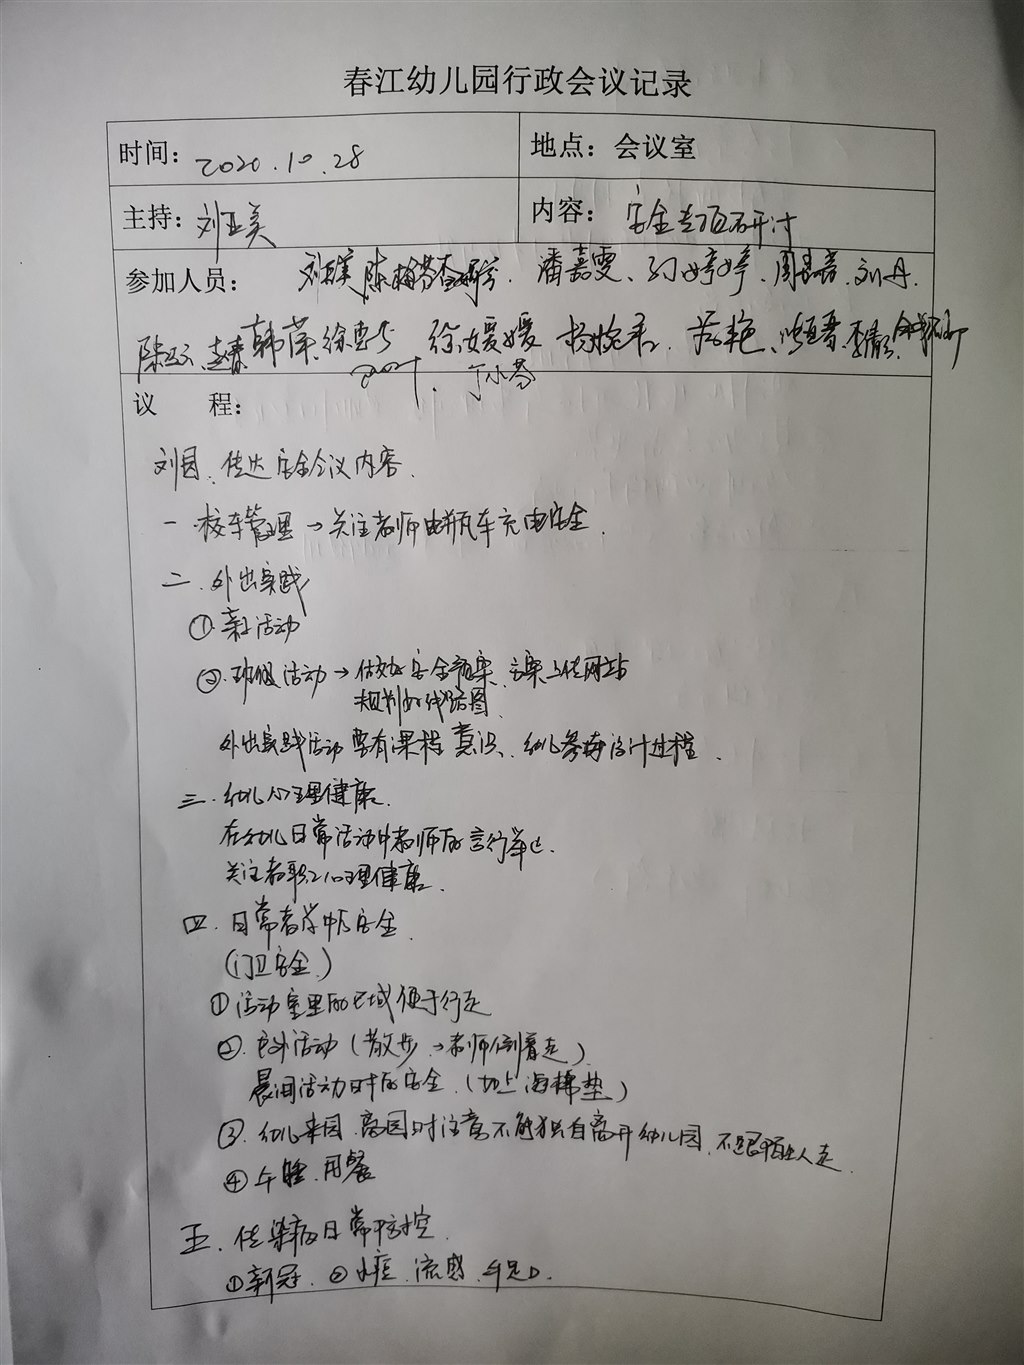 春江幼儿园行政会议记录
时间：2020.10.28
地点：会议室
主持：刘亚美
内容：安全专项研讨
参加人员：刘亚美 陈梅芬 潘嘉雯、孙婷婷、周 刘丹.
韩萍 徐 徐媛媛 杨婉君 艳
丁小芬
议 程：
刘园、传达安全会议内容.
一.校车管理→关注老师电瓶车充电安全.
二.外出实践
①.亲子活动
②.班级活动→做好安全预案、方案上传网站
规划好线路图.
外出实践活动要有课程意识、幼儿参与设计过程.
三.幼儿心理健康.
在幼儿日常活动中老师的言行举止.
关注教职工心理健康.
四.日常教学中的安全.
(门卫安全.)
①活动室里的区域便于行走
②.户外活动(散步→老师倒着走).
晨间活动时的安全.(地上海棉垫)
③.幼儿来园.离园时注意不能独自离开幼儿园.不跟陌生人走.
④午睡.用餐
五.传染病日常防控.
①新冠.②水痘.流感.手足口.